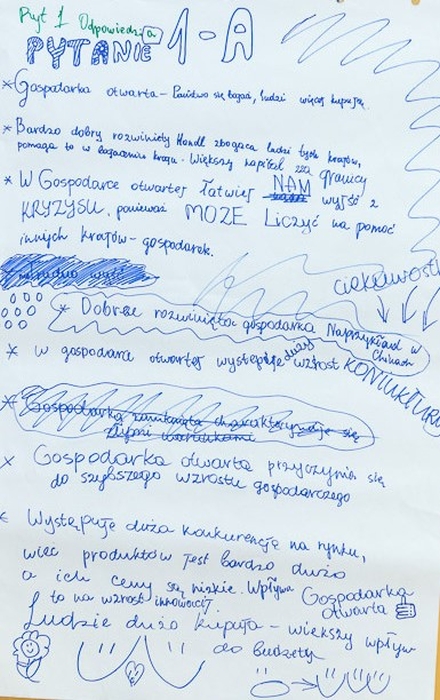 Pyt 1 Odpowiedzia
PYTANIE 1-A
* Gospodarka otwarta - Państwo się bogaci, ludzi więcej kupują.
* Bardzo dobry rozwiniety Handl zbogaca ludzi tych krajów,
pomaga to w bogaceniu kraju. Większy napiłel zza granicy
* W Gospodarce otwartej łatwiej NAM wyjść z
KRYZYSU, ponieważ MOZE Liczyć na pomoć
innych krajów-gospodarek.
ciekawostk
* Dobrze rozwinięta gospodarka Naprzykład w
Chinach
* w gospodarce otwartej występuje duży wzrost KONIUKTURY
* Gospodarka zamknięta charakteryzuje się
złymi warunkami
* Gospodarka otwarta przyczynia się
do szybszego wzrostu gospodarczego
* Występuje duża konkurencje na rynku,
więc produktów jest bardzo dużo
a ich ceny są niskie. Wpływa
to na wzrost innowacji.
Gospodarka
otwarta
Ludzie dużo kupują - większy wpływ
do budżetu